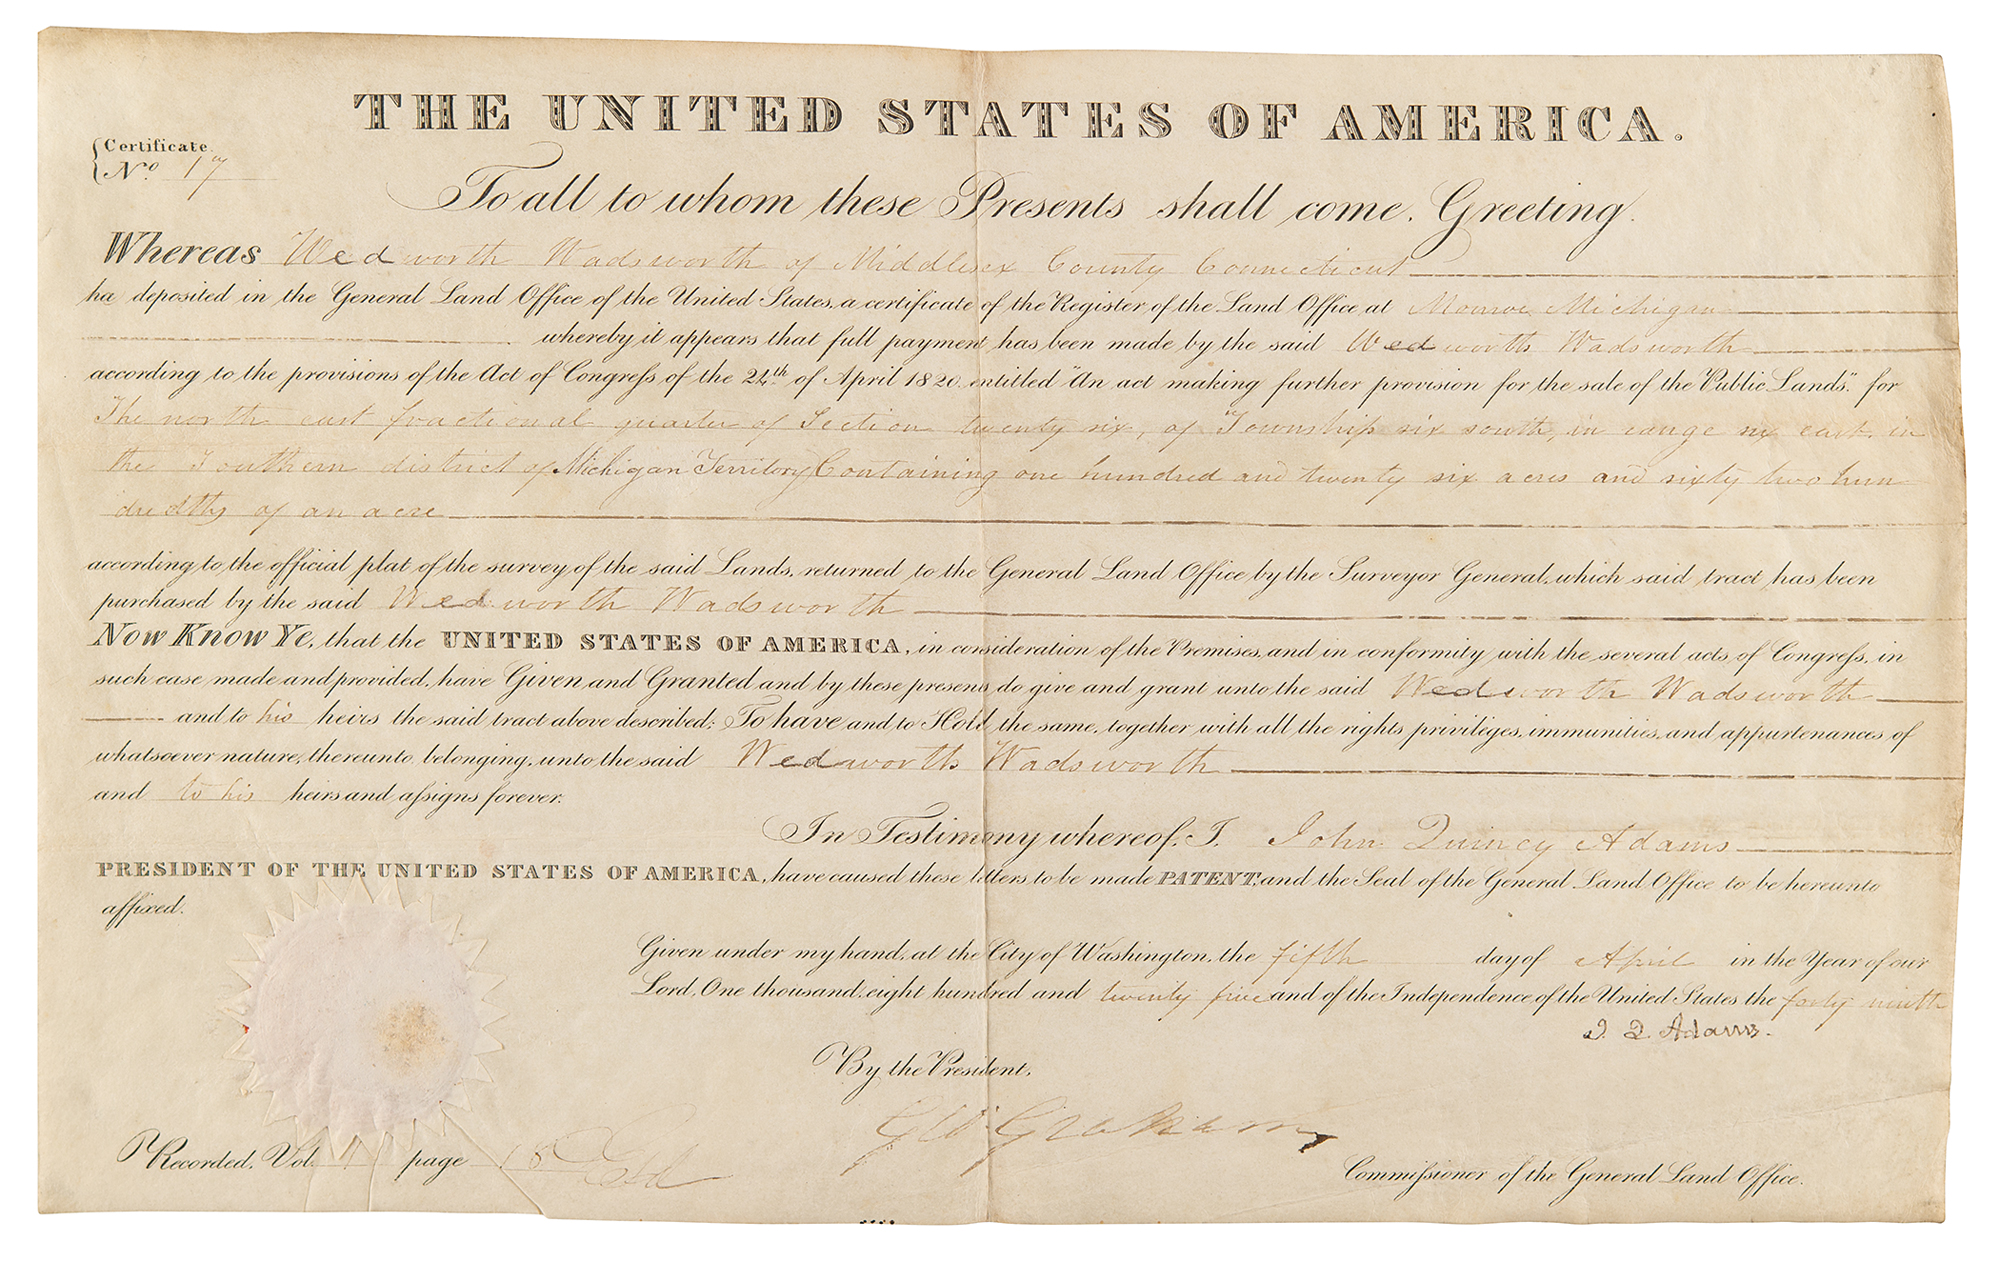 THE UNITED STATES OF AMERICA.
{Certificate
No. 17
To all to whom these Presents shall come, Greeting.
Whereas Wedworth Wadsworth of Middlesex County Connecticut
ha deposited in the General Land Office of the United States, a certificate of the Register of the Land Office at Monroe Michigan
whereby it appears that full payment has been made by the said Wedworth Wadsworth
according to the provisions of the Act of Congress of the 24th of April 1820. entitled "An act making further provision for the sale of the Public Lands". for
The north east fractional quarter of Section twenty six, of Township six south, in range six east, in
the Southern district of Michigan Territory Containing one hundred and twenty six acres and sixty two hun
dredths of an acre
according to the official plat of the survey of the said Lands, returned to the General Land Office by the Surveyor General, which said tract has been
purchased by the said Wedworth Wadsworth
Now Know Ye, that the UNITED STATES OF AMERICA, in consideration of the Premises, and in conformity with the several acts of Congress, in
such case made and provided, have Given and Granted and by these presents do give and grant unto the said Wedworth Wadsworth
and to his heirs the said tract above described; To have and to Hold the same, together with all the rights privileges, immunities, and appurtenances of
whatsoever nature, thereunto belonging, unto the said Wedworth Wadsworth
and to his heirs and assigns forever.
In Testimony whereof, I, John Quincy Adams
PRESIDENT OF THE UNITED STATES OF AMERICA, have caused these letters to be made PATENT, and the Seal of the General Land Office to be hereunto
affixed.
Given under my hand, at the City of Washington, the fifth day of April in the Year of our
Lord, One thousand, eight hundred and twenty five and of the Independence of the United States the forty ninth
J. Q. Adams.
By the President,
Geo. Graham
Commissioner of the General Land Office.
Recorded, Vol. page 18